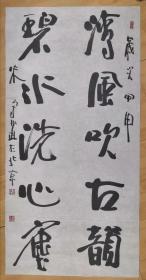 歲次甲申
清風吹古韻
碧水洗心塵